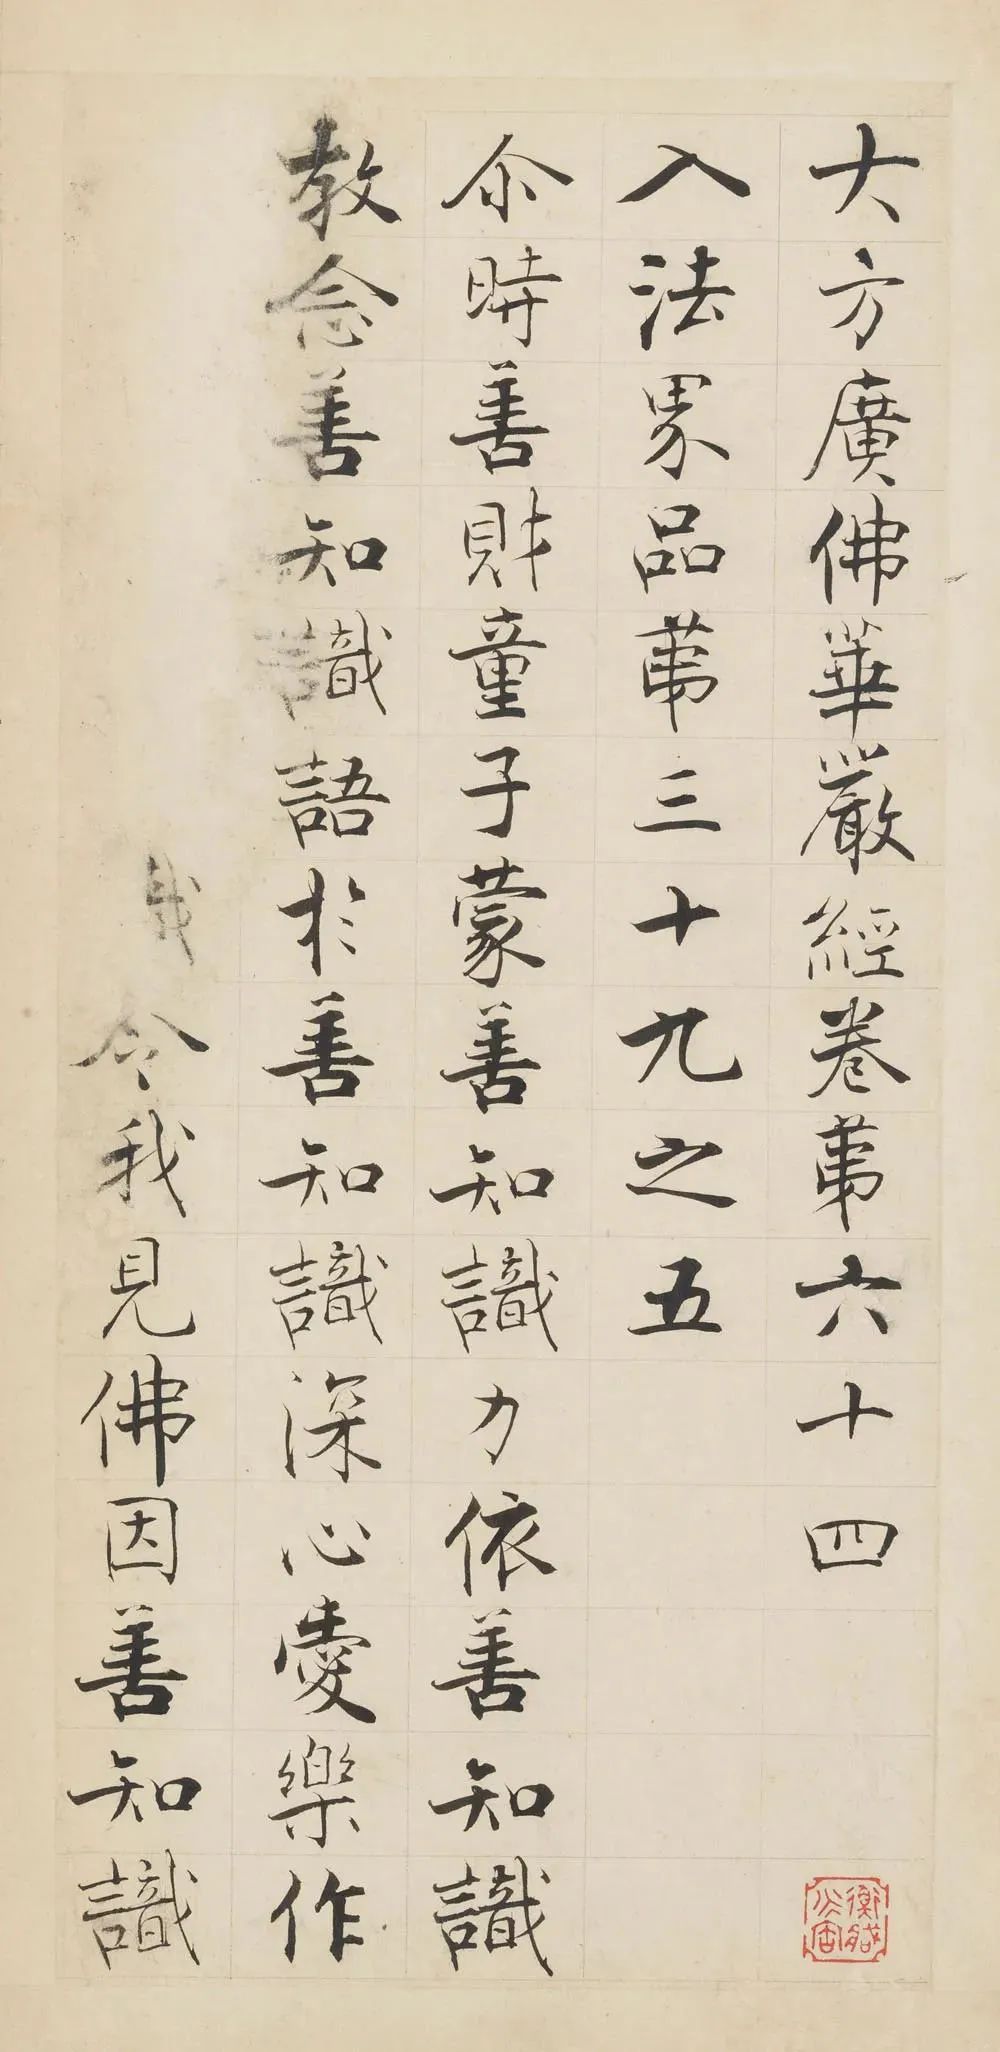 大方廣佛華嚴經卷第六十四
入法界品第三十九之五
尒時善財童子蒙善知識力依善知識
教念善知識語於善知識深心愛樂作
我令我見佛因善知識